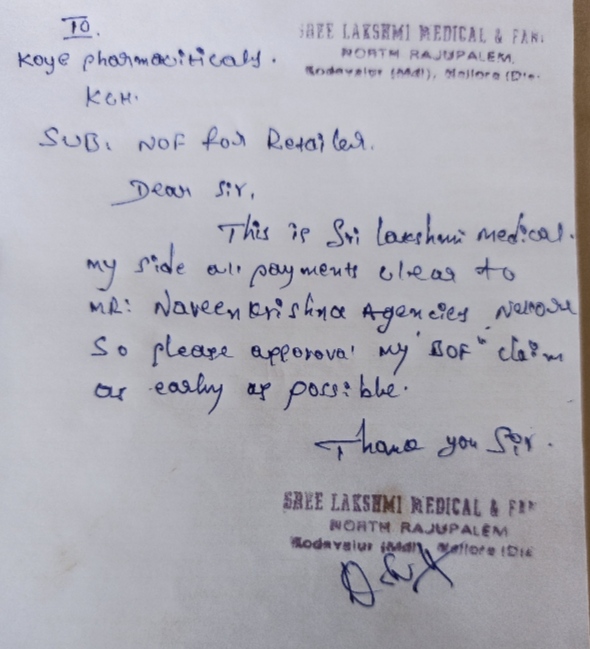 TO.
SREE LAKSHMI MEDICAL & FAN
NORTH RAJUPALEM,
Kodavalur (Mdl), Nellore (Dis
Koye pharmaciticals.
KCH.
SUB: NOF for Retailer.
Dear Sir,
This is Sri Lakshmi medical.
my side all payments clear to
MR: Naveen Krishna Agencies Nellore
So please apporoval my "BOF" claim
as early as possible.
Thank you Sir.
SREE LAKSHMI MEDICAL & FAN
NORTH RAJUPALEM
Kodavalur (Mdl), Nellore (Dis